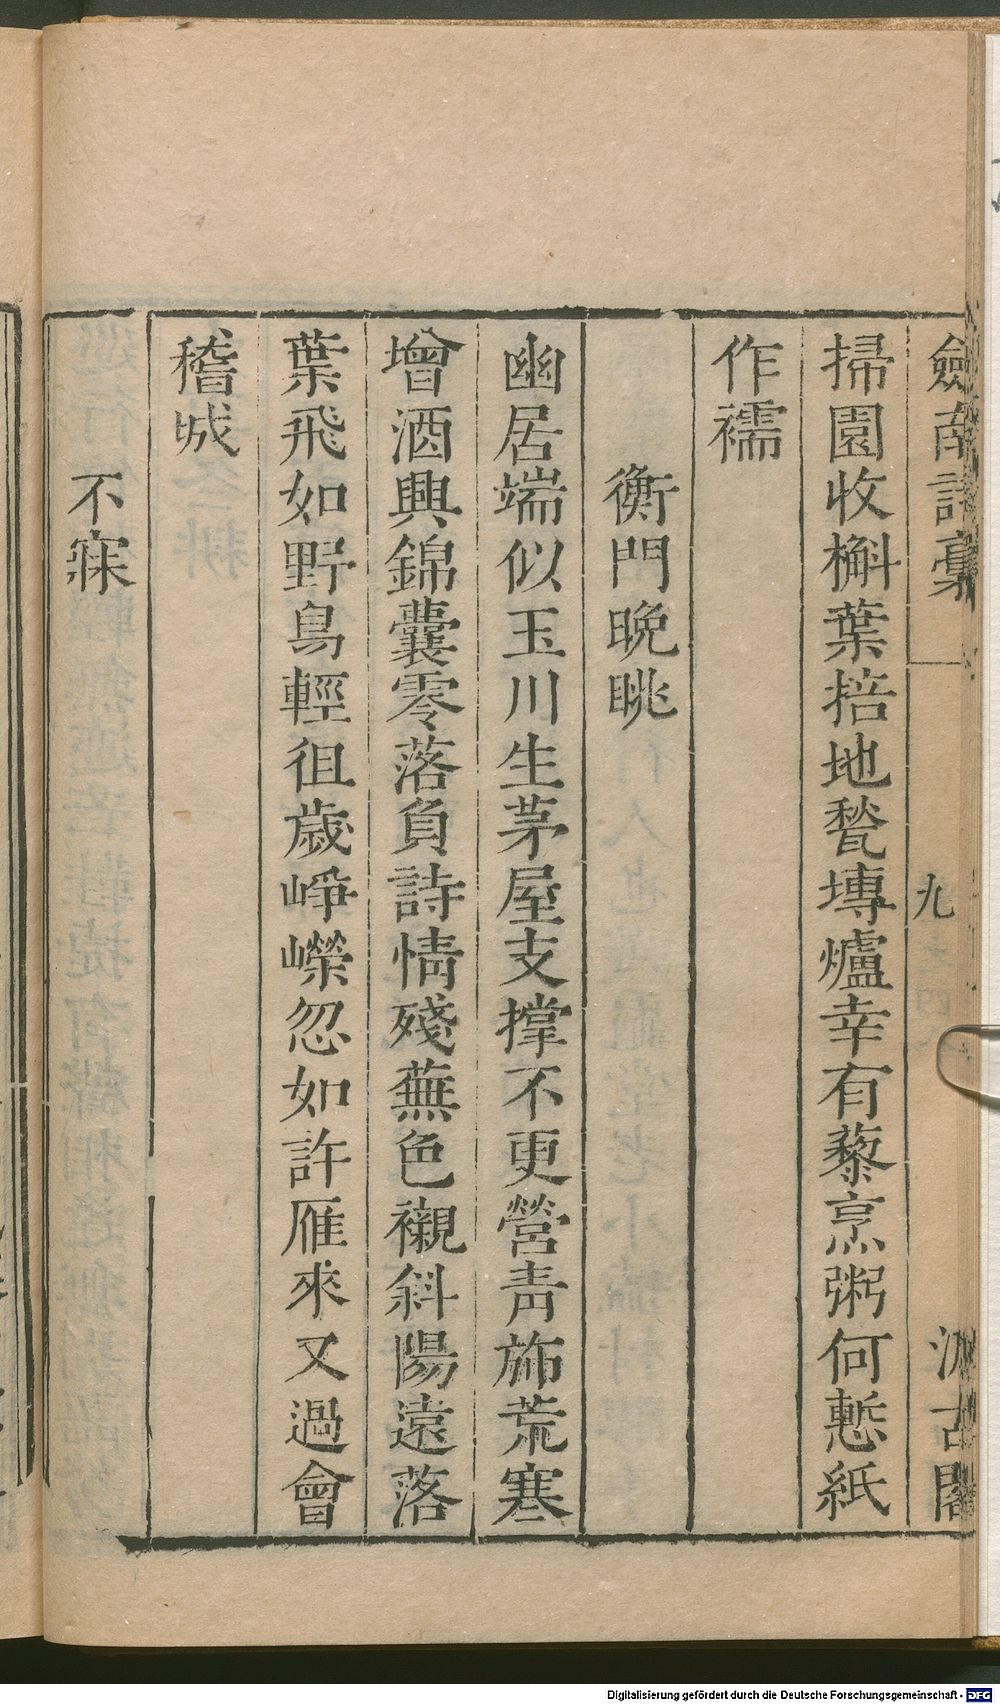 劍南詩稾 九 汲古閣
掃園收槲葉掊地甃塼爐幸有藜烹粥何慙紙
作襦
衡門晚眺
幽居端似玉川生茅屋支撐不更營靑斾荒寒
增酒興錦囊零落負詩情殘蕪色襯斜陽遠落
葉飛如野鳥輕徂歲崢嶸忽如許雁來又過會
稽城
不寐
Digitalisierung gefördert durch die Deutsche Forschungsgemeinschaft - DFG